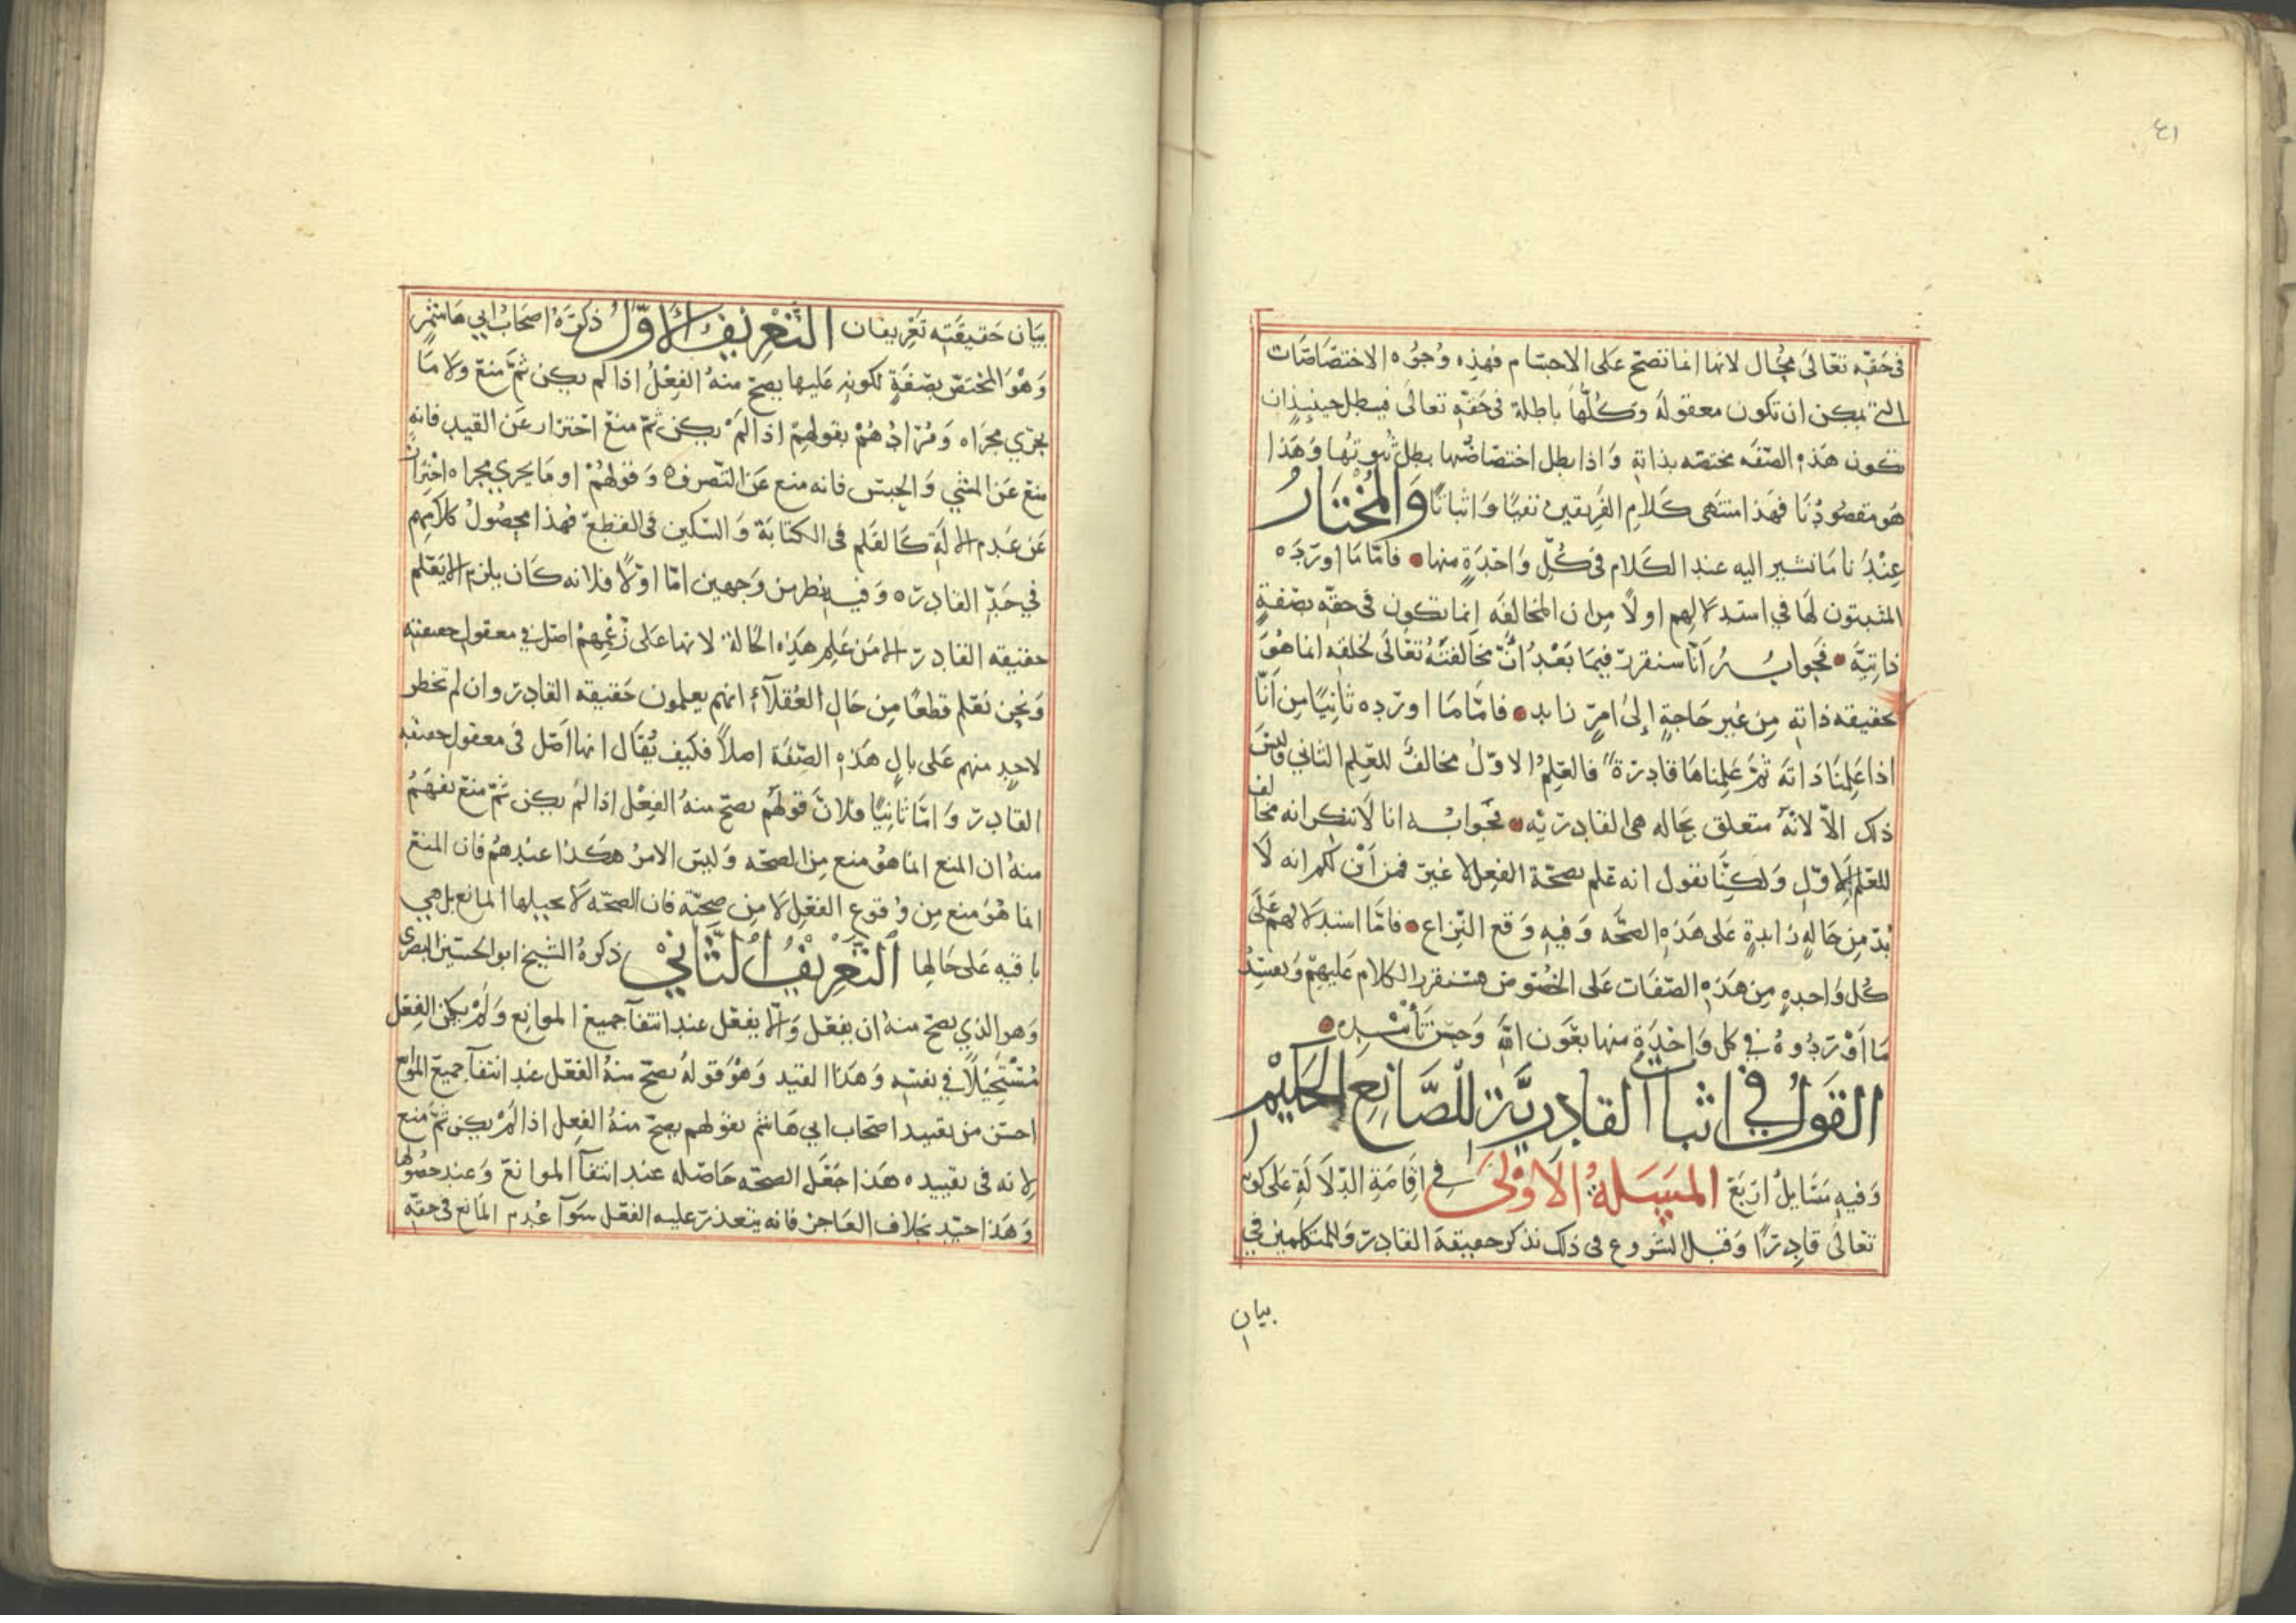 ٤١
في حقه تعالى محال لانها انما تصح على الاجسام فهذه وجوه الاختصاصات
التي يمكن ان تكون معقولة وكلها باطلة في حقه تعالى فبطل حينيذ ان
تكون هذه الصفه مختصه بذاته واذا بطل اختصاصها بطل ثبوتها وهذا
هو مقصودنا فهذا منتهى كلام الفريقين نفيا واثباتا والمختار
عندنا ما نشير اليه عند الكلام في كل واحدة منها فاما ما اورده
المثبتون لها في استدلالهم اولا من ان المخالفه انما تكون في حقه بصفة
ذاتية فجوابه انا سنقرر فيما بعد ان مخالفته تعالى لخلقه انما هو
بحقيقه ذاته من غير حاجة الى امر زايد فاما ما اورده ثانيا من انا
اذا علمنا ذاته ثم علمناها قادرة فالعلم الاول مخالف للعلم الثاني وليس
ذلك الا لانه متعلق بحاله هي القادريه فجوابه انا لا ننكر انه مخالف
للعلم الاول ولكنا نقول انه علم بصحة الفعل لا غير فمن اين لكم انه لا
بد من حاله زايدة على هذه الصحه وفيه وقع النزاع فاما استدلالهم على
كل واحده من هذه الصفات على الخصوص فسنقرر الكلام عليهم ونفسد
ما اوردوه في كل واحدة منها بعون الله وحسن تأييده
القول في اثبات القادرية للصانع الحكيم
وفيه مسايل اربع المسئلة الاولى في اقامة الدلالة على كونه
تعالى قادرا وقبل الشروع في ذلك نذكر حقيقة القادر وللمتكلمين في
بيان
بيان حقيقته تعريفان التعريف الاول ذكره اصحاب ابي هاشم
وهو المختص بصفة لكونه عليها يصح منه الفعل اذا لم يكن ثم منع ولا ما
يجري مجراه ومرادهم بقولهم اذا لم يكن ثم منع احترار عن القيد فانه
منع عن المشي والحبس فانه منع عن التصرف وقولهم او ما يجري مجراه احتراز
عن عدم الالة كالقلم في الكتابة والسكين في القطع فهذا محصول كلامهم
في حد القادر وفيه نظر من وجهين اما اولا فلانه كان يلزم الا يعلم
حقيقه القادر الا من علم هذه الحالة لانها على زعمهم اصل في معقول حقيقته
ونحن نعلم قطعا من حال العقلاء انهم يعلمون حقيقه القادر وان لم تخطر
لاحد منهم على بال هذه الصفة اصلا فكيف يقال انها اصل في معقول حقيقه
القادر واما ثانيا فلان قولهم يصح منه الفعل اذا لم يكن ثم منع يفهم
منه ان المنع انما هو منع من الصحه وليس الامر هكذا عندهم فان المنع
انما هو منع من وقوع الفعل لا من صحته فان الصحه لا يحيلها المانع بل هي
باقيه على حالها التعريف الثاني ذكره الشيخ ابو الحسين البصري
وهو الذي يصح منه ان يفعل والا يفعل عند انتفا جميع الموانع ولم يكن الفعل
مستحيلا في نفسه وهذا القيد وهو قوله يصح منه الفعل عند انتفا جميع الموانع
احسن من تقييد اصحاب ابي هاشم بقولهم يصح منه الفعل اذا لم يكن ثم منع
لانه في تقييده هذا جعل الصحه حاصله عند انتفا الموانع وعند حصولها
وهذا جيد بخلاف العاجز فانه يتعذر عليه الفعل سوا عدم المانع في حقه